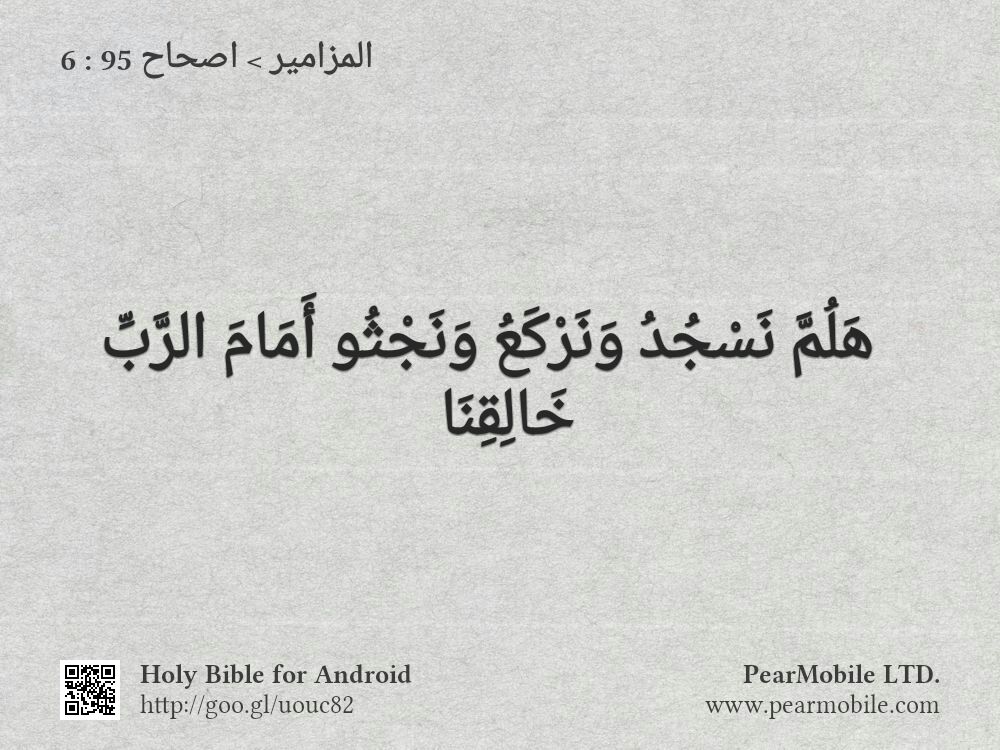 المزامير > اصحاح 95 : 6
هَلُمَّ نَسْجُدُ وَنَرْكَعُ وَنَجْثُو أَمَامَ الرَّبِّ
خَالِقِنَا
Holy Bible for Android
http://goo.gl/uouc82
PearMobile LTD.
www.pearmobile.com